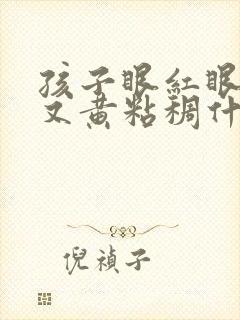 孩子眼紅眼
又黄粘稠什
倪禎子